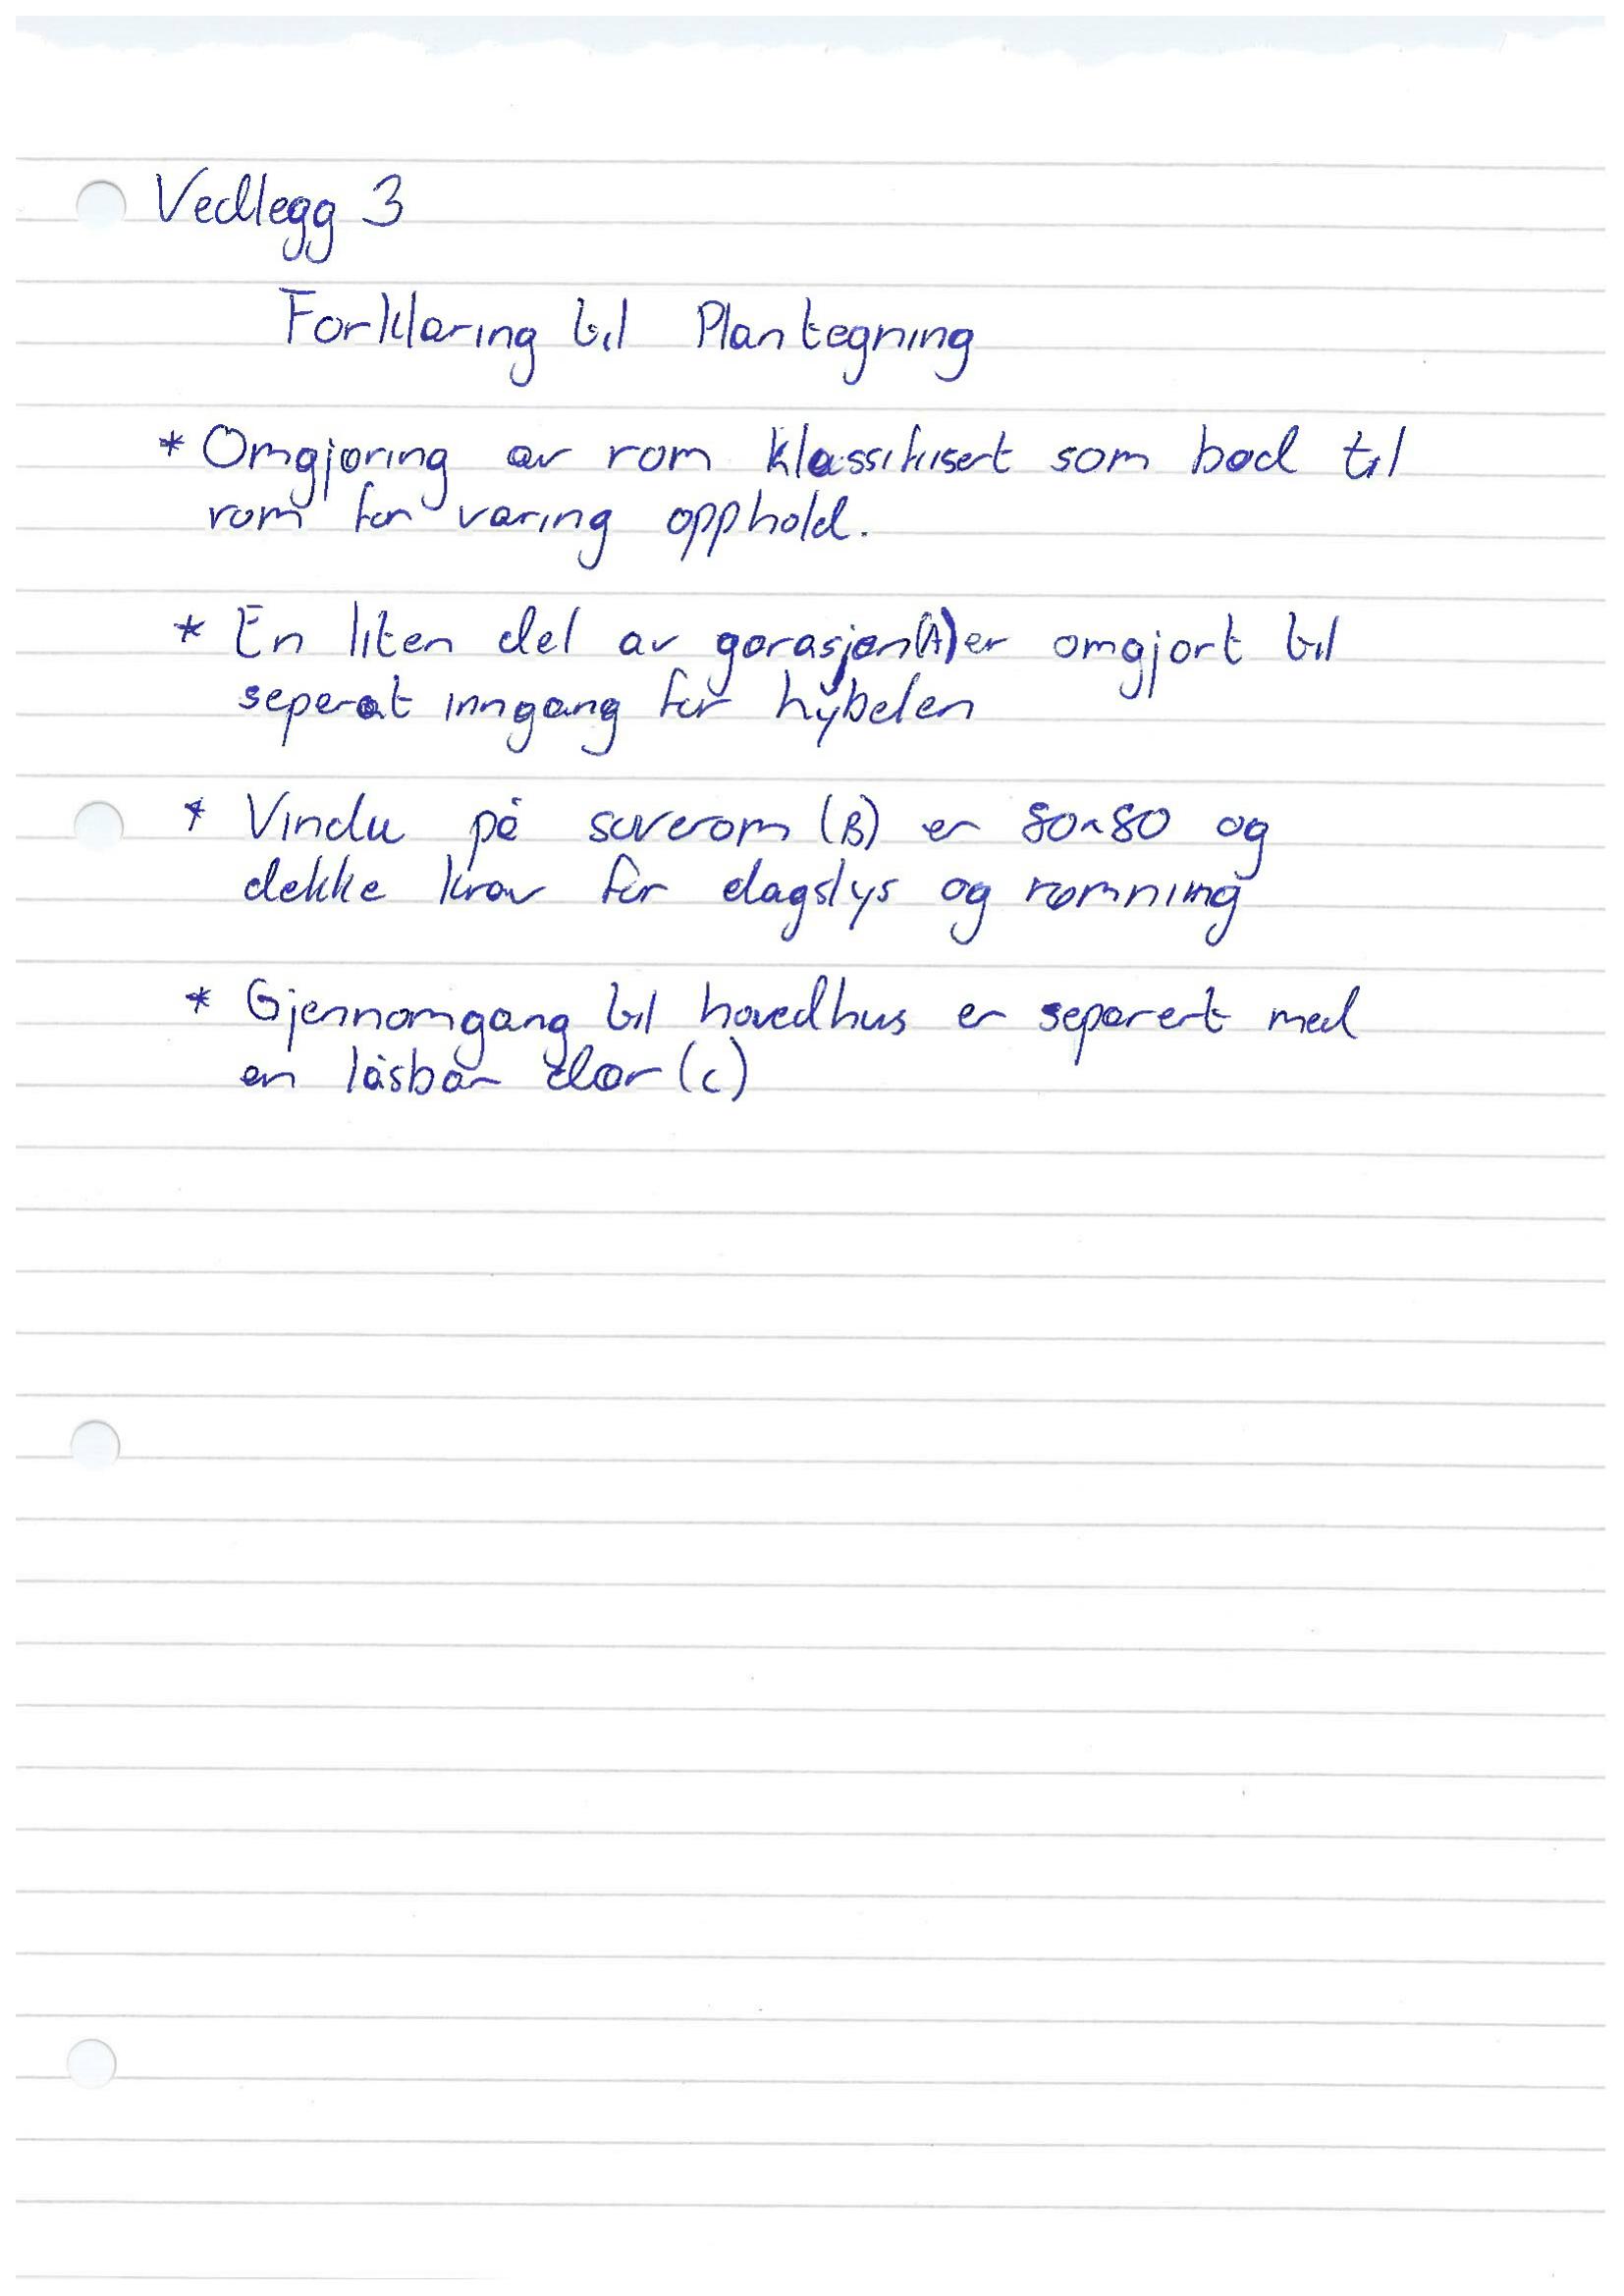 Vedlegg 3
Forklaring til Plantegning
* Omgjøring av rom klassifisert som bod til
rom for varing opphold.
* En liten del av garasjen(A) er omgjort til
seperat inngang for hybelen
* Vindu på soverom (B) er 80x80 og
dekke krav for dagslys og rømning
* Gjennomgang til hovedhus er separert med
en låsbar dør (C)